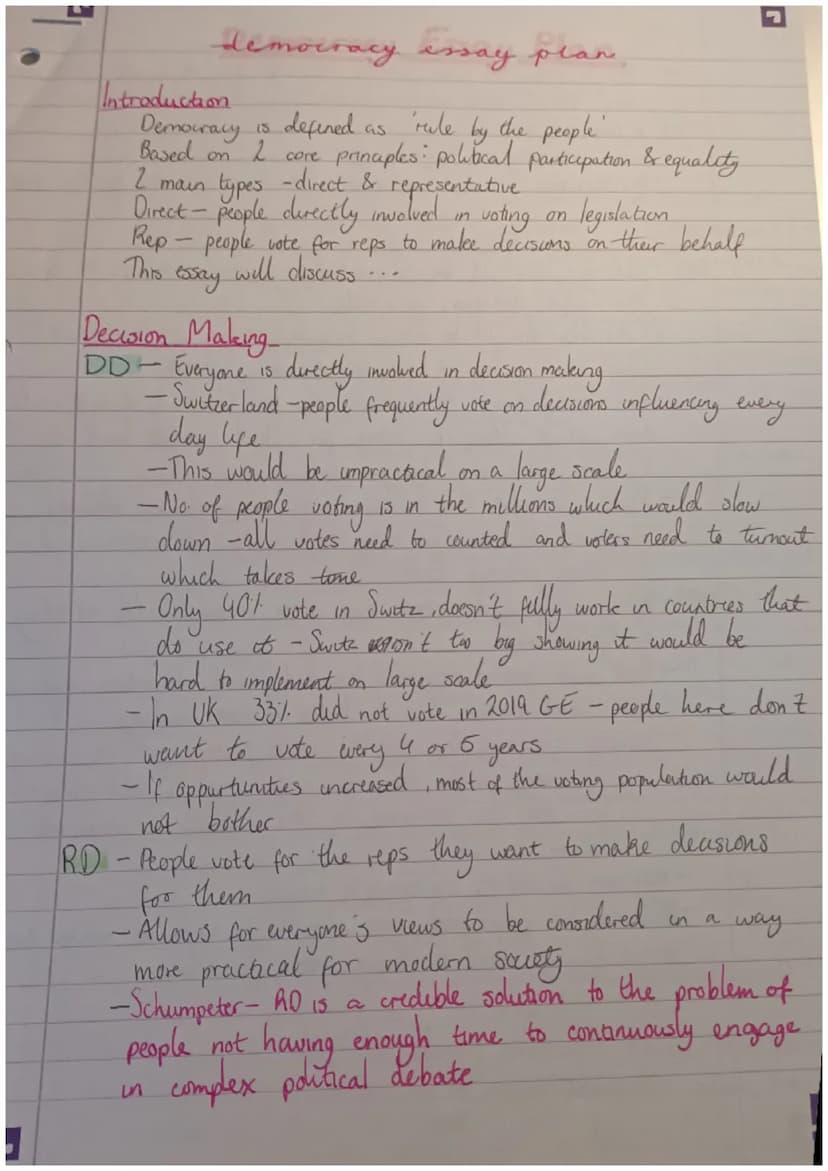 democracy essay plan
Introduction
Democracy is defined as 'rule by the people'
Based on 2 core principles: political participation & equality
2 main types - direct & representative
Direct - people directly involved in voting on legislation
Rep - people vote for reps to make decisions on their behalf
This essay will discuss ...
Decision Making
DD - Everyone is directly involved in decision making
- Switzerland - people frequently vote on decisions influencing every
day life
- This would be impractical on a large scale
- No. of people voting is in the millions which would slow
down - all votes need to counted and voters need to turnout
which takes time
- Only 40% vote in Switz, doesn't fully work in countries that
do use it - Switz isn't too big showing it would be
hard to implement on large scale
- In UK 33% did not vote in 2019 GE - people here don't
want to vote every 4 or 5 years
- If oppurtunities increased, most of the voting population would
not bother
RD - People vote for the reps they want to make decisions
for them
- Allows for everyone's views to be considered in a way
more practical for modern society
- Schumpeter - RD is a credible solution to the problem of
people not having enough time to continuously engage
in complex political debate